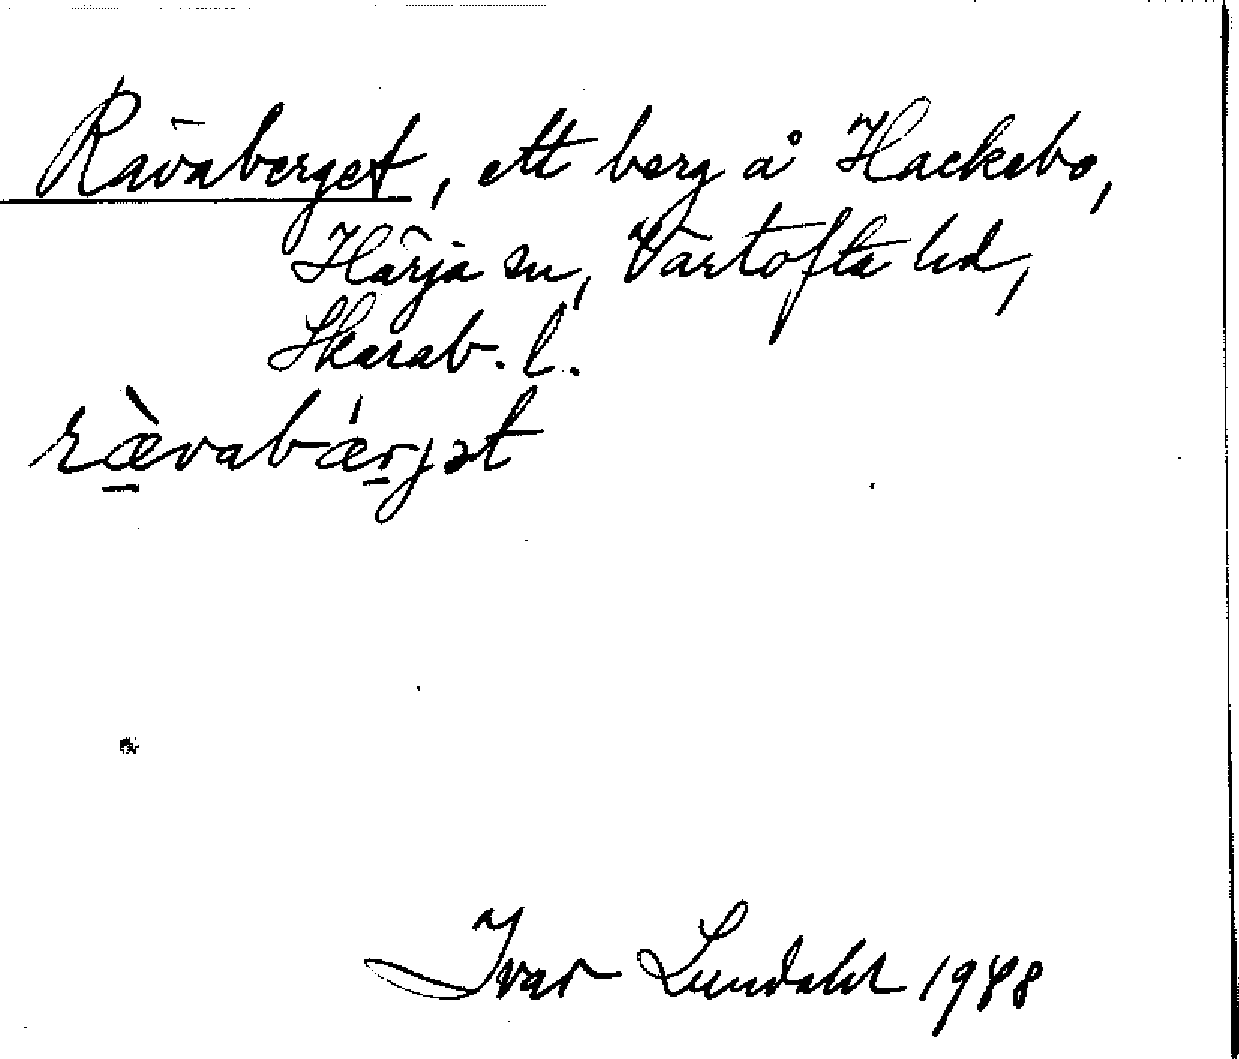 Rävaberget, ett berg å Hackebo,
Härja sn, Vartofta hd,
Skarab. l.
ræ̀vabǽrjət
Ivar Lundahl 1948